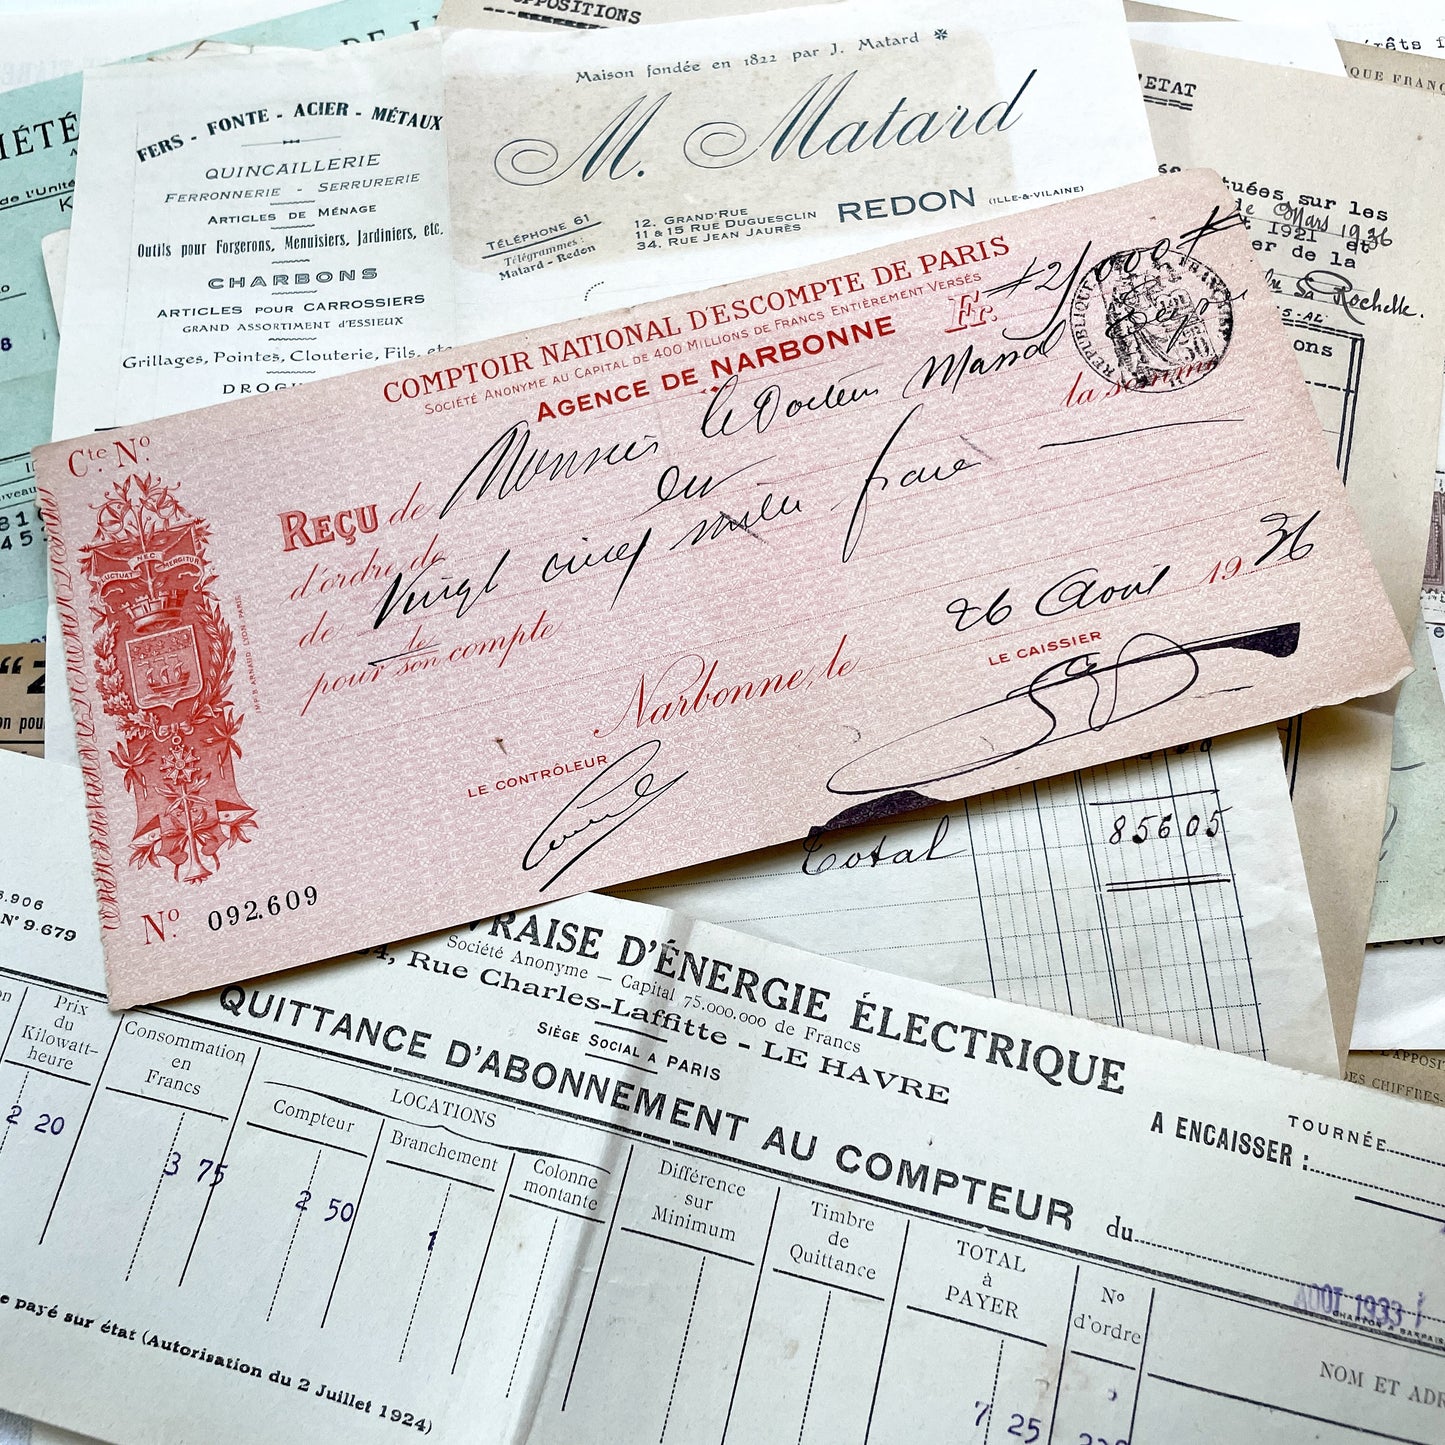 OPPOSITIONS
DE
IÉTÉ
de l'Unité
FERS - FONTE - ACIER - MÉTAUX
QUINCAILLERIE
FERRONNERIE - SERRURERIE
ARTICLES DE MÉNAGE
Outils pour Forgerons, Menuisiers, Jardiniers, etc.
CHARBONS
ARTICLES POUR CARROSSIERS
GRAND ASSORTIMENT d'ESSIEUX
Grillages, Pointes, Clouterie, Fils, etc
DROGU
Maison fondée en 1822 par J. Matard
M. Matard
TÉLÉPHONE 61
Télégrammes:
Matard - Redon
12, GRAND'RUE
11 & 15 RUE DUGUESCLIN
34, RUE JEAN JAURÈS
REDON (ILLE-&-VILAINE)
QUE FRANÇ
'ETAT
tuées sur les
de Mars 1936
1921 et
er de la
Rochelle.
ons
COMPTOIR NATIONAL D'ESCOMPTE DE PARIS
SOCIÉTÉ ANONYME AU CAPITAL DE 400 MILLIONS DE FRANCS ENTIÈREMENT VERSÉS
AGENCE DE NARBONNE
Fr.
RÉPUBLIQUE FRANÇAISE
Cte. No.
REÇU de Monsieur le Docteur
la somme
d'ordre de
de Vingt cinq mille francs
pour son compte
le
Narbonne, le 26 Avril 1936
LE CONTRÔLEUR
LE CAISSIER
FLUCTUAT NEC MERGITUR
IMP. B. ARNAUD LYON PARIS
No. 092.609
Total 85605
.906
N° 9.679
VRAISE D'ÉNERGIE ÉLECTRIQUE
Société Anonyme — Capital 75.000.000 de Francs
4, Rue Charles-Laffitte - LE HAVRE
SIÈGE SOCIAL A PARIS
QUITTANCE D'ABONNEMENT AU COMPTEUR du
A ENCAISSER :
TOURNÉE
AOUT 1933
Prix du Kilowatt-heure
Consommation en Francs
LOCATIONS
Compteur
Branchement
Colonne montante
Différence sur Minimum
Timbre de Quittance
TOTAL à PAYER
No d'ordre
NOM ET ADR
2 20
3 75
2 50
1
7 25
e payé sur état (Autorisation du 2 Juillet 1924)